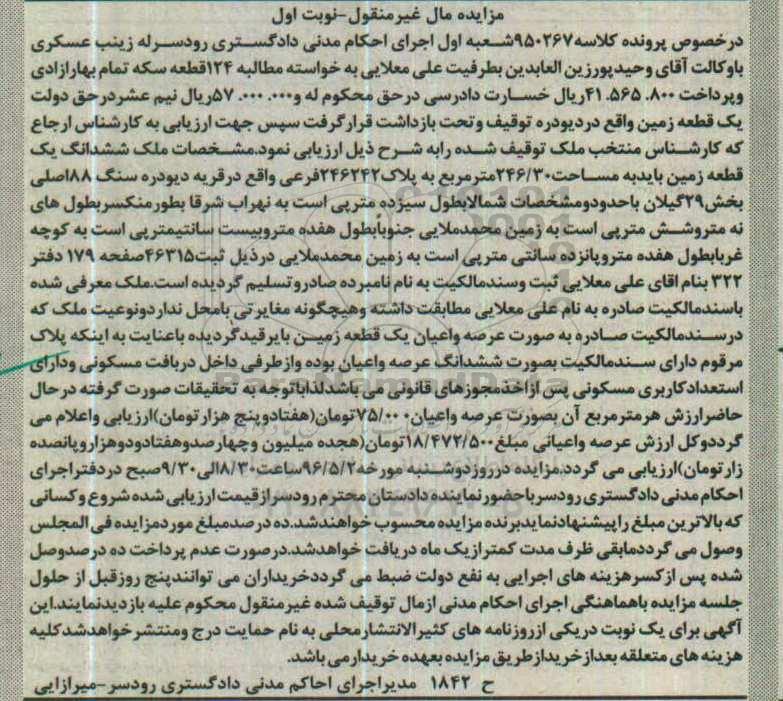 مزایده مال غیرمنقول-نوبت اول
درخصوص پرونده کلاسه۹۵۰۲۶۷شعبه اول اجرای احکام مدنی دادگستری رودسرله زینب عسکری
باوکالت آقای وحیدپورزین العابدین بطرفیت علی معلایی به خواسته مطالبه ۱۲۴قطعه سکه تمام بهارازادی
وپرداخت ۸۰۰. ۵۶۵. ۴۱ریال خسارت دادرسی درحق محکوم له و۰۰۰. ۰۰۰. ۵۷ریال نیم عشردرحق دولت
یک قطعه زمین واقع دردیودره توقیف وتحت بازداشت قرارگرفت سپس جهت ارزیابی به کارشناس ارجاع
که کارشناس منتخب ملک توقیف شده رابه شرح ذیل ارزیابی نمود.مشخصات ملک ششدانگ یک
قطعه زمین بایدبه مساحت۲۴۶/۳۰مترمربع به پلاک۲۴۶۲۴۲فرعی واقع درقریه دیودره سنگ ۸۸اصلی
بخش۲۹گیلان باحدودومشخصات شمالابطول سیزده مترپی است به نهراب شرقا بطورمنکسربطول های
نه متروشش مترپی است به زمین محمدملایی جنوبأبطول هفده متروبیست سانتیمترپی است به کوچه
غربابطول هفده متروپانزده سانتی مترپی است به زمین محمدملایی درذیل ثبت۴۶۳۱۵صفحه ۱۷۹ دفتر
۳۲۲ بنام اقای علی معلایی ثبت وسندمالکیت به نام نامبرده صادروتسلیم گردیده است.ملک معرفی شده
باسندمالکیت صادره به نام علی معلایی مطابقت داشته وهیچگونه مغایرتی بامحل نداردونوعیت ملک که
درسندمالکیت صادره به صورت عرصه واعیان یک قطعه زمین بایرقیدگردیده باعنایت به اینکه پلاک
مرقوم دارای سندمالکیت بصورت ششدانگ عرصه واعیان بوده وازطرفی داخل دربافت مسکونی ودارای
استعدادکاربری مسکونی پس ازاخذمجوزهای قانونی می باشدلذاباتوجه به تحقیقات صورت گرفته درحال
حاضرارزش هرمترمربع آن بصورت عرصه واعیان۷۵/۰۰۰تومان(هفتادوپنج هزارتومان)ارزیابی واعلام می
گرددوکل ارزش عرصه واعیانی مبلغ۱۸/۴۷۲/۵۰۰تومان(هجده میلیون وچهارصدوهفتادودوهزاروپانصده
زارتومان)ارزیابی می گردد.مزایده درروزدوشنبه مورخه۹۶/۵/۲ساعت۸/۳۰الی۹/۳۰صبح دردفتراجرای
احکام مدنی دادگستری رودسرباحضورنماینده دادستان محترم رودسرازقیمت ارزیابی شده شروع وکسانی
که بالاترین مبلغ راپیشنهادنمایدبرنده مزایده محسوب خواهندشد.ده درصدمبلغ موردمزایده فی المجلس
وصول می گرددمابقی ظرف مدت کمترازیک ماه دریافت خواهدشد.درصورت عدم پرداخت ده درصدوصل
شده پس ازکسرهزینه های اجرایی به نفع دولت ضبط می گرددخریداران می توانندپنج روزقبل از حلول
جلسه مزایده باهماهنگی اجرای احکام مدنی ازمال توقیف شده غیرمنقول محکوم علیه بازدیدنمایند.این
آگهی برای یک نوبت دریکی ازروزنامه های کثیرالانتشارمحلی به نام حمایت درج ومنتشرخواهدشدکلیه
هزینه های متعلقه بعدازخریدازطریق مزایده بعهده خریدارمی باشد.
ح ۱۸۴۲ مدیراجرای احاکم مدنی دادگستری رودسر-میرزایی